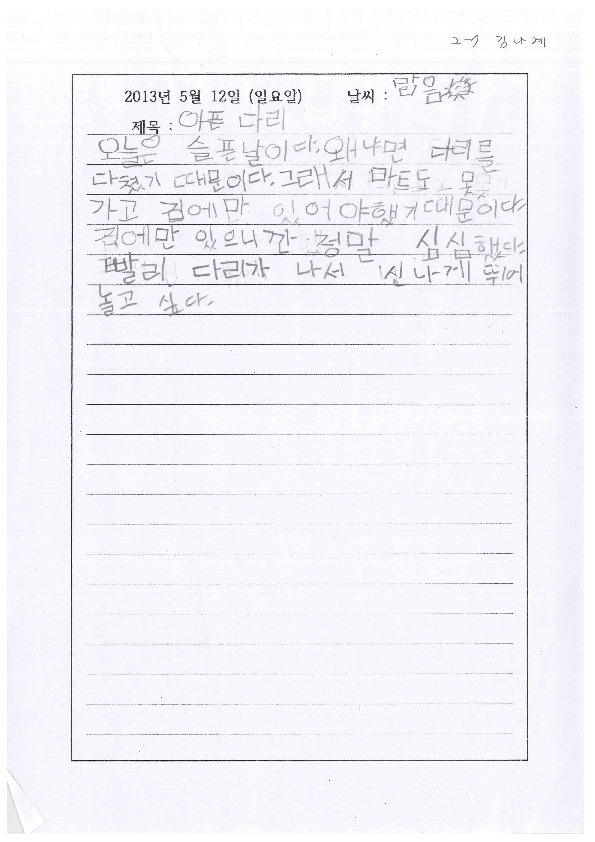 2-7 김나예
2013년 5월 12일 (일요일) 날씨 : 맑음
제목 : 아픈 다리
오늘은 슬픈날이다. 왜냐면 다리를
다쳤기 때문이다. 그래서 마트도 못
가고 집에만 있어야했기때문이다
집에만 있으니깐 정말 심심했다
빨리 다리가 나서 신나게 뛰어
놀고 싶다.